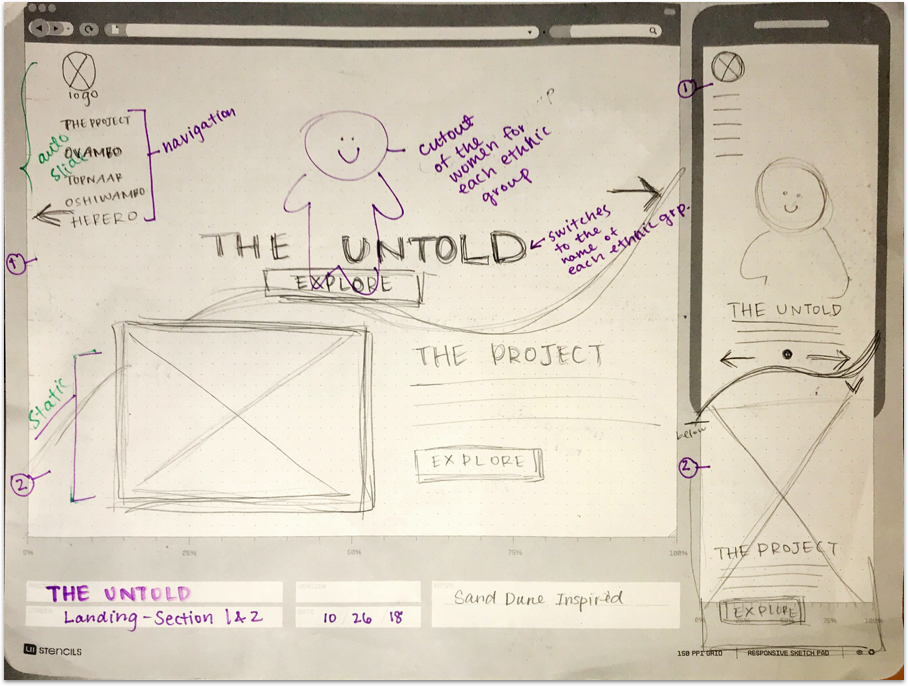 logo
THE PROJECT
OVAMBO
TOPNAAR
OSHIWAMBO
HERERO
auto
slide
navigation
cutout
of the
women for
each ethnic
group
THE UNTOLD
switches
to the
name of
each ethnic grp.
EXPLORE
1
THE PROJECT
EXPLORE
Static
2
0%
25%
50%
75%
100%
1
THE UNTOLD
below
2
THE PROJECT
EXPLORE
0%
100%
THE UNTOLD
Landing - Section 1 & 2
10 26 18
Sand Dune Inspired
UI STENCILS
150 PPI GRID
RESPONSIVE SKETCH PAD